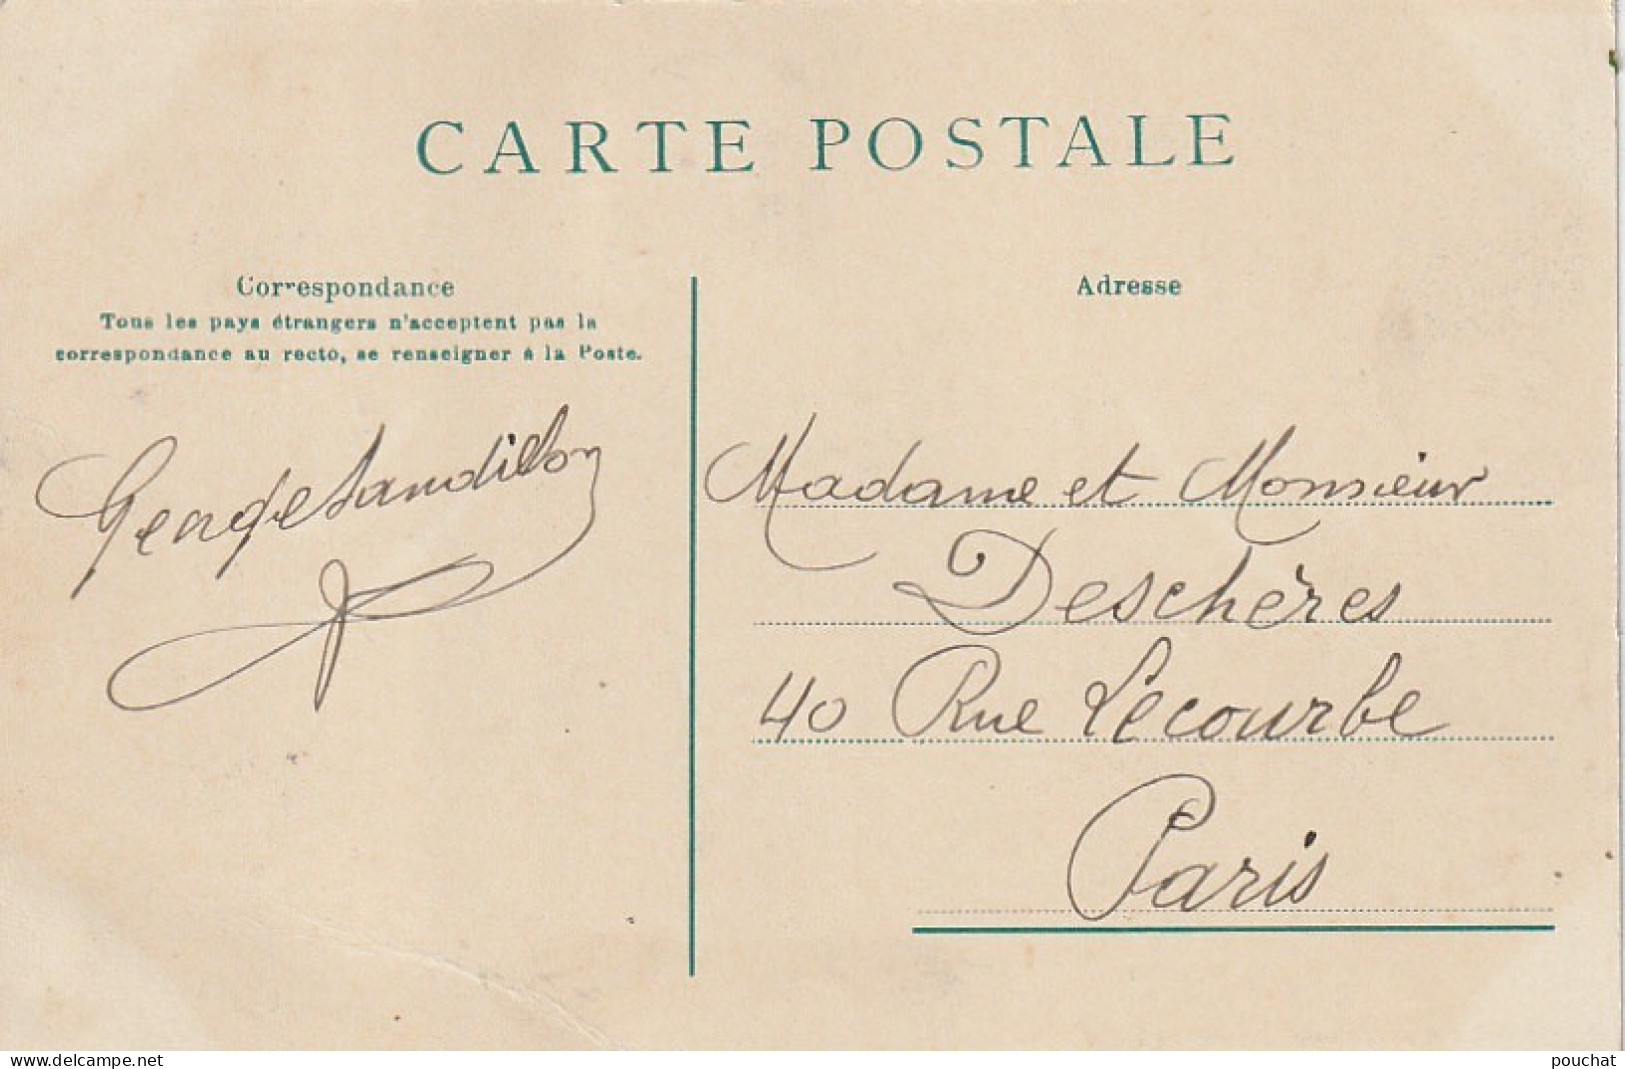 CARTE POSTALE
Correspondance
Tous les pays étrangers n'acceptent pas la
correspondance au recto, se renseigner à la Poste.
Adresse
Madame et Monsieur
Deschères
40 Rue Lecourbe
Paris
www.delcampe.net
pouchat